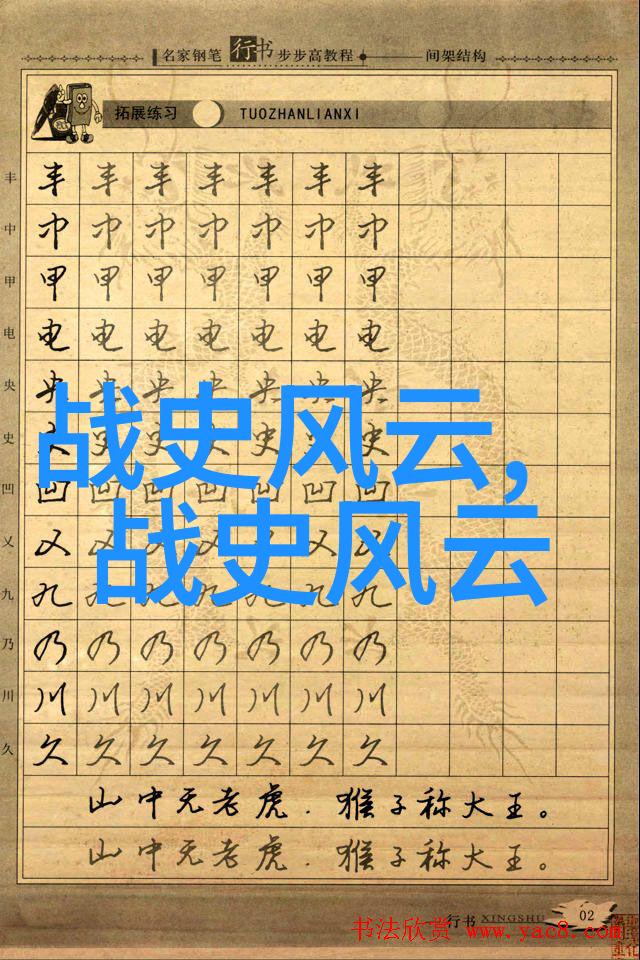 名家钢笔行书步步高教程 间架结构
拓展练习 TUOZHANLIANXI
丰 丰 丰 丰 丰 丰 丰 丰
中 中 中 中 中 中 中 中
甲 甲 甲 甲 甲 甲 甲 甲
电 电 电 电 电 电 电 电
央 央 央 央 央 央 央 央
史 史 史 史 史 史 史 史
战史风云,
凹 凹 凹 凹 凹 凹 凹 凹
乂 乂 乂 乂 乂 乂 乂 乂
战史风云
九 九 九 九 九 九 九 九
乃 乃 乃 乃 乃 乃 乃 乃
川 川 川 川 川 川 川 川
久 久 久 久 久 久 久 久
山中无老虎.猴子称大王。
山中无老虎.猴子称大王。
行书 XINGSHU 02
书法欣赏 www.yac8.com